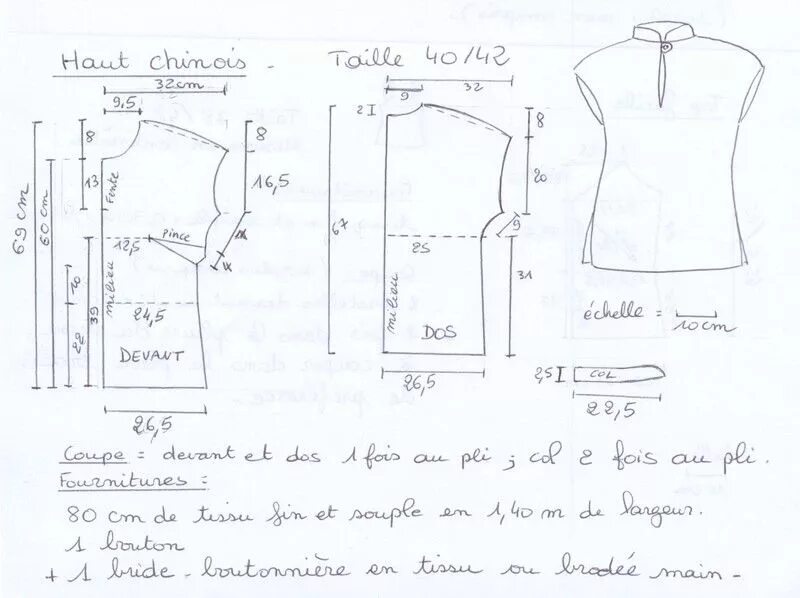 Haut chinois - Taille 40/42
32cm
9,5
8
8
13
16,5
69 cm
60 cm
Fente
Pince
12,5
4
milieu
10
39
22
24,5
DEVANT
26,5
32
9
2
8
20
67
9
25
31
milieu
DOS
26,5
échelle =
10cm
2,5
COL
22,5
Coupe = devant et dos 1 fois au pli ; col 2 fois au pli.
Fournitures :
80 cm de tissu fin et souple en 1,40 m de largeur.
1 bouton
+ 1 bride - boutonnière en tissu ou brodée main -